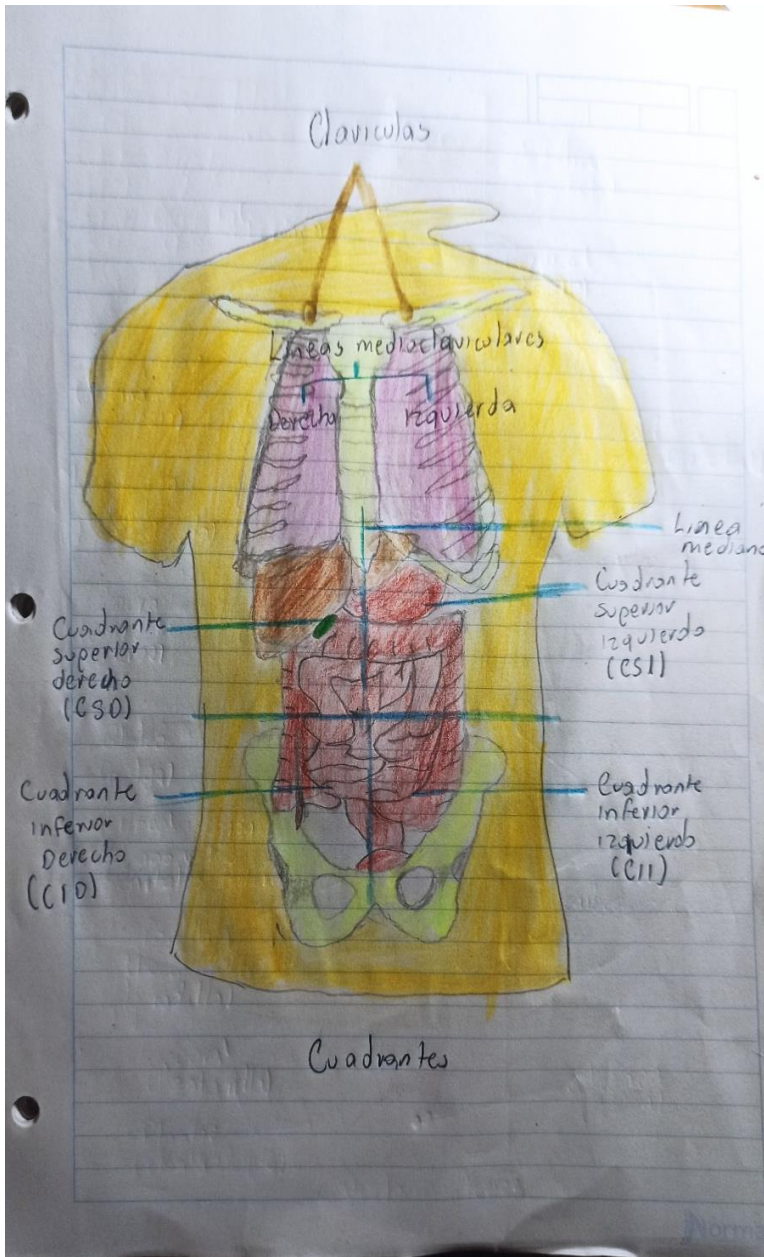 Claviculas
Lineas medioclaviculares
Derecha
Izquierda
Linea
mediana
Cuadrante
superior
izquierdo
(CSI)
Cuadrante
superior
derecho
(CSD)
Cuadrante
inferior
Derecho
(CID)
Cuadrante
inferior
izquierdo
(CII)
Cuadrantes
Norma